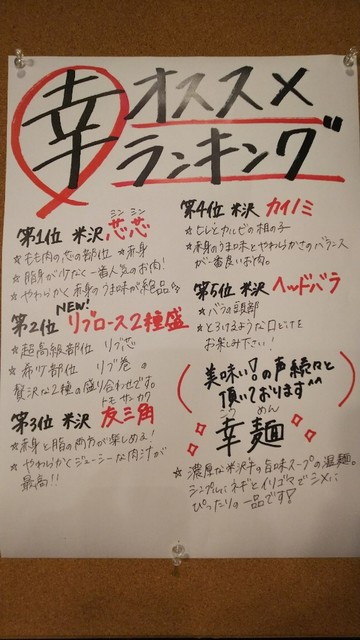 幸
オススメ
ランキング
第1位 米沢 芯芯
シンシン
☆もも肉の芯の部位 ☆赤身
☆脂身が少なく一番人気のお肉!
☆やわらかく赤身のうま味が絶品☆
NEW!
第2位 リブロース2種盛
☆超高級部位 リブ芯
☆希少部位 リブ巻の
贅沢な2種の盛り合わせです。
トモサンカク
第3位 米沢 友三角
☆赤身と脂の両方が楽しめる!
☆やわらかくジューシーな肉汁が
最高!!
第4位 米沢 カイノミ
☆ヒレとカルビの相の子
☆赤身のうま味とやわらかさのバランス
が一番良いお肉。
第5位 米沢 ヘッドバラ
☆バラの頭部
☆とろけるような口どけを
お楽しみ下さい!
(美味い!の声続々と
頂いております^^)
こう めん
幸麺
☆濃厚な米沢牛の旨味スープの温麺。
シンプルにネギとイリゴマでシメに
ぴったりの一品です!